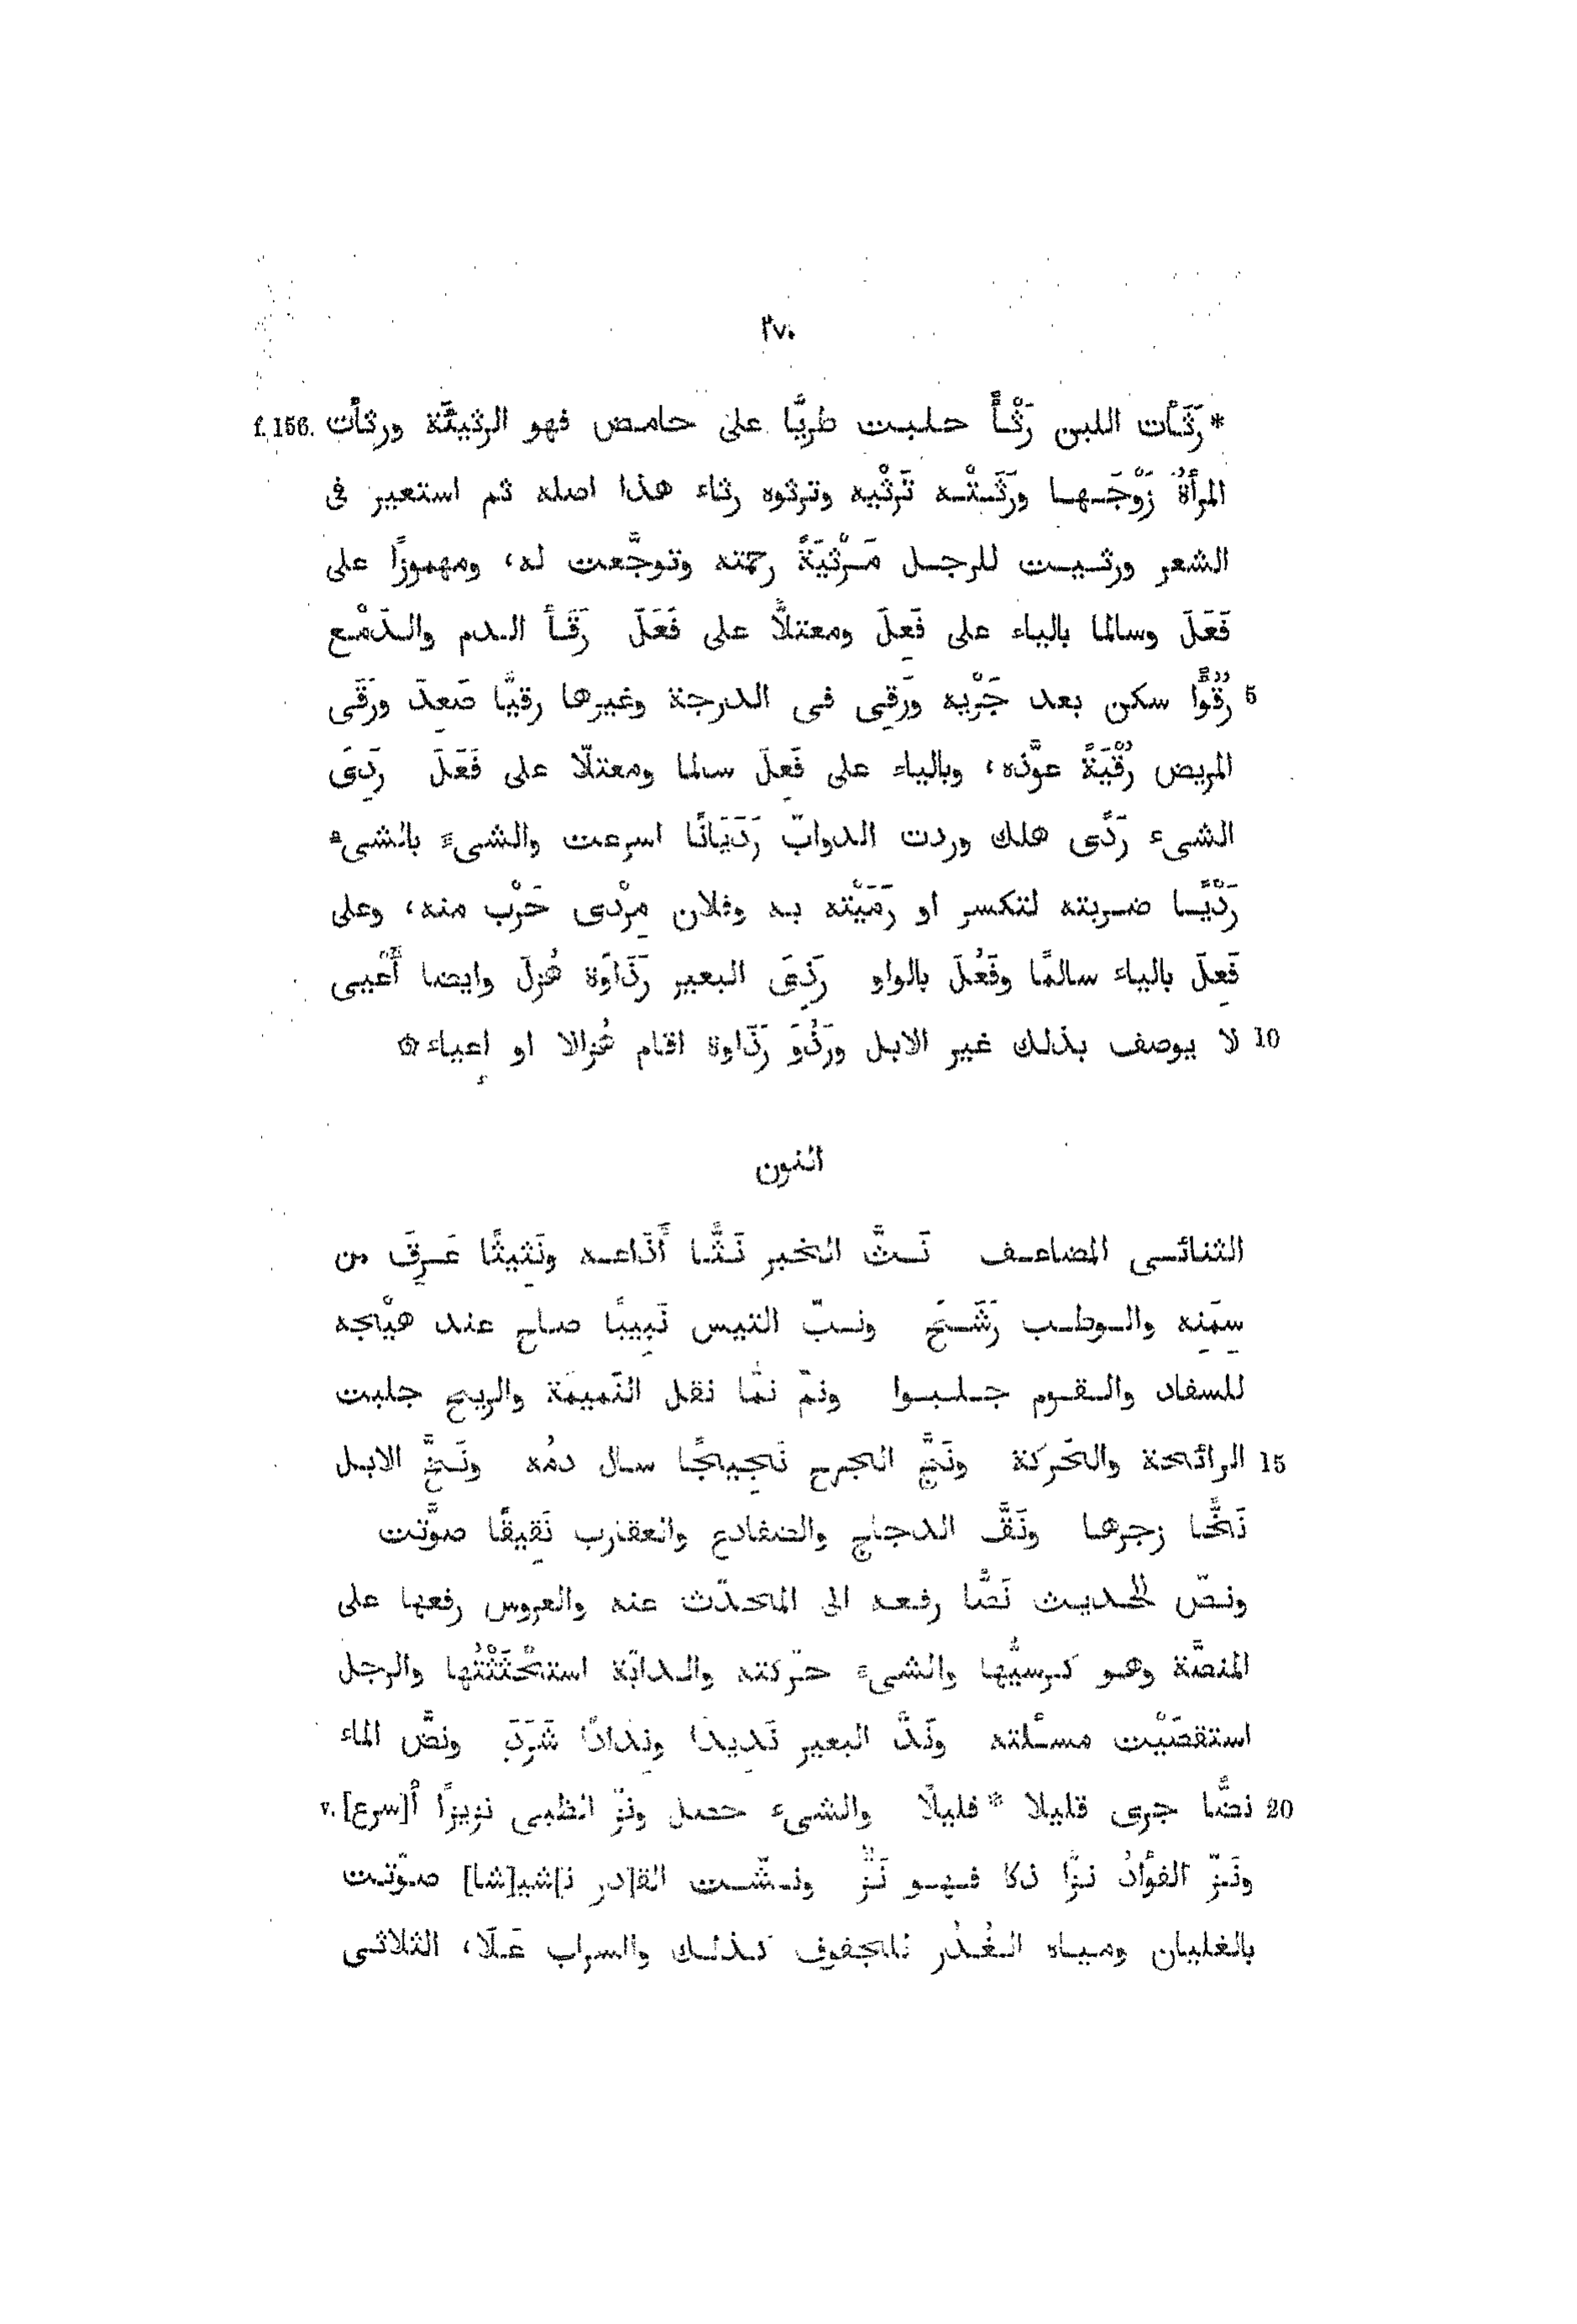 ٢٧٠
*رَثَأْت اللبن رَثْأً حلبت طريًّا على حامض فهو الرثيئَة ورثأت f. 156.
المرأةُ زَوْجَها ورَثَتْه تَرْثيه وترثوه رثاء هذا اصله ثم استعير فى
الشعر ورثيت للرجل مَرْثيَةً رحمته وتوجَّعت له، ومهموزًا على
فَعَلَ وسالما بالياء على فَعِلَ ومعتلًّا على فَعَلَ رَقَأَ الدم والدَمْع
5 رُقُوًّا سكن بعد جَرْيه ورَقِى فى الدرجة وغيرها رقيًّا صَعِدَ ورَقَى
المريض رُقْيَةً عوَّذه، وبالياء على فَعِلَ سالما ومعتلّا على فَعَلَ رَدِىَ
الشىء رَدًى هلك وردت الدوابّ رَدَيَانًا اسرعت والشىءَ بالشىء
رَدْيًا ضربته لتكسر او رَمَيْته به وفلان مِرْدى حَرْب منه، وعلى
فَعِلَ بالياء سالمًا وفَعُلَ بالواو رَذِىَ البعير رَذَاوَة هُزلَ وايضا أَعْيى
10 لا يوصف بذلك غير الابل ورَذُوَ رَذَاوة اقام هُزالا او إعياء ۞
النون
الثنائى المضاعف نَثَّ الخبر نَثًّا أَذَاعه ونَثِيثًا عَرِقَ من
سِمَنِه والوطب رَشَحَ ونبّ التيس نَبِيبًا صاح عند هَيْاجِه
للسفاد والقوم جلبوا ونمّ نمًّا نقل النَّميمَة والريح جلبت
15 الرائحة والحَركة ونَجَّ الجرح نَجِيجًا سال دمُه ونَخَّ الابل
نَخًّا زجرها ونَقَّ الدجاج والضفادع والعقارب نَقِيقًا صوَّتت
ونصّ الحديث نَصًّا رفعه الى المحدّث عنه والعروس رفعها على
المنصَّة وهو كرسيُّها والشىء حرّكته والدابّة استحْثَثْتُها والرجل
استقصَيْت مسئلته ونَدَّ البعير نَدِيدًا ونِدادًا شَرَدَ ونضَّ الماء
20 نضًّا جرى قليلا * قليلًا والشىء حصل ونزّ الظبى نزيزًا أ[سرع] v.
ونَزّ الفؤادُ نزًّا ذكا فهو نَزٌّ ونشّت الق[در ن]شي[شا] صوّتت
بالغليان ومياه الغُدُر للجفوف كذلك والسراب عَلَا، الثلاثى